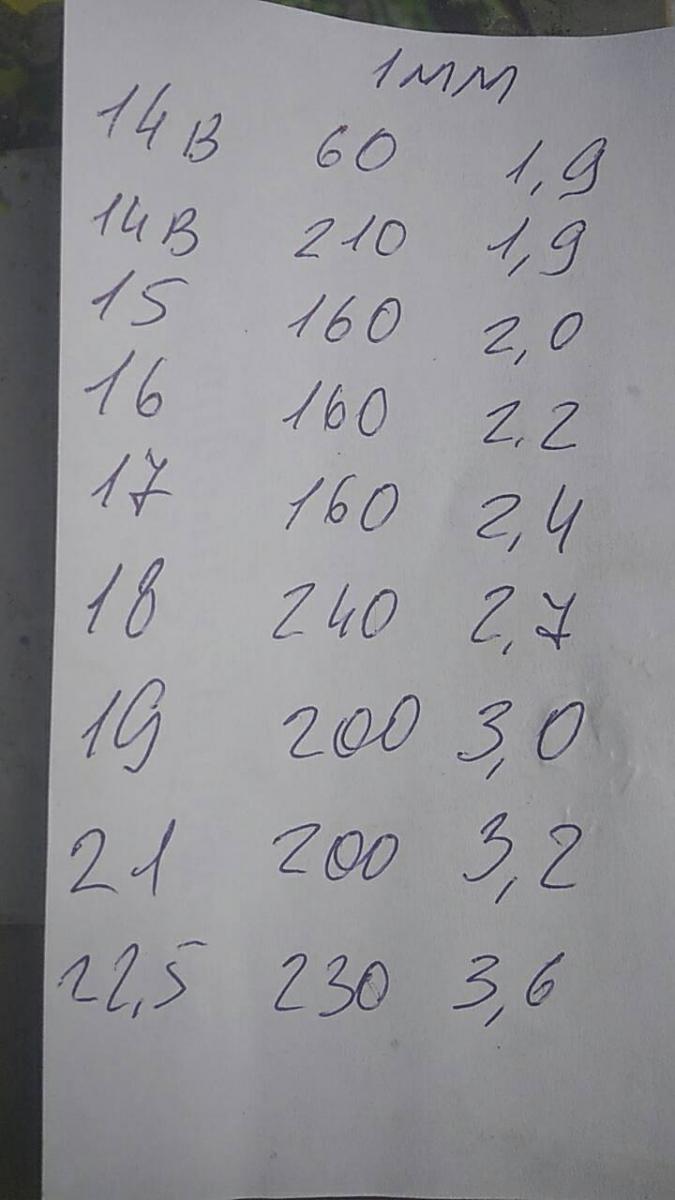 1мм
14в 60 1,9
14в 210 1,9
15 160 2,0
16 160 2,2
17 160 2,4
18 240 2,7
19 200 3,0
21 200 3,2
22,5 230 3,6